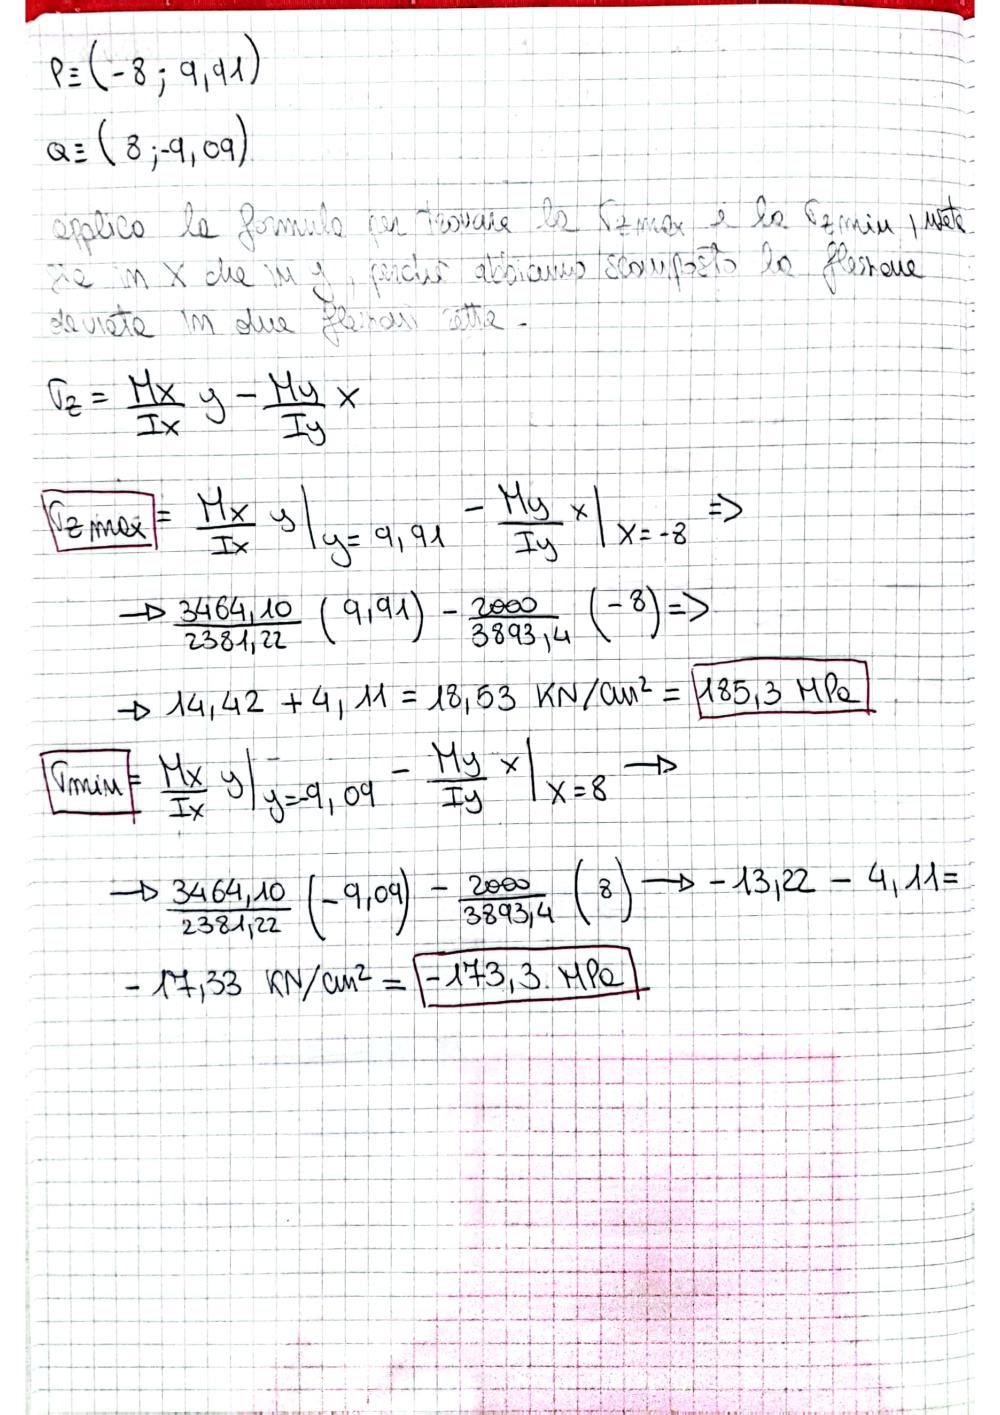 P≡(-8; 9,91)
Q≡(8;-9,09)
applico la formula per trovare la σz max e la σz min,
sia in x che in y, perché abbiamo scomposto la flessione
deviata in due flessioni rette.
σz = Mx/Ix y - My/Iy x
σz max = Mx/Ix y|y=9,91 - My/Iy x|x=-8 =>
→ 3464,10/2381,22 (9,91) - 2000/3893,4 (-8) =>
→ 14,42 + 4,11 = 18,53 KN/cm² = 185,3 MPa
σmin = Mx/Ix y|y=-9,09 - My/Iy x|x=8 →
→ 3464,10/2381,22 (-9,09) - 2000/3893,4 (8) → -13,22 - 4,11=
-17,33 KN/cm² = -173,3. MPa